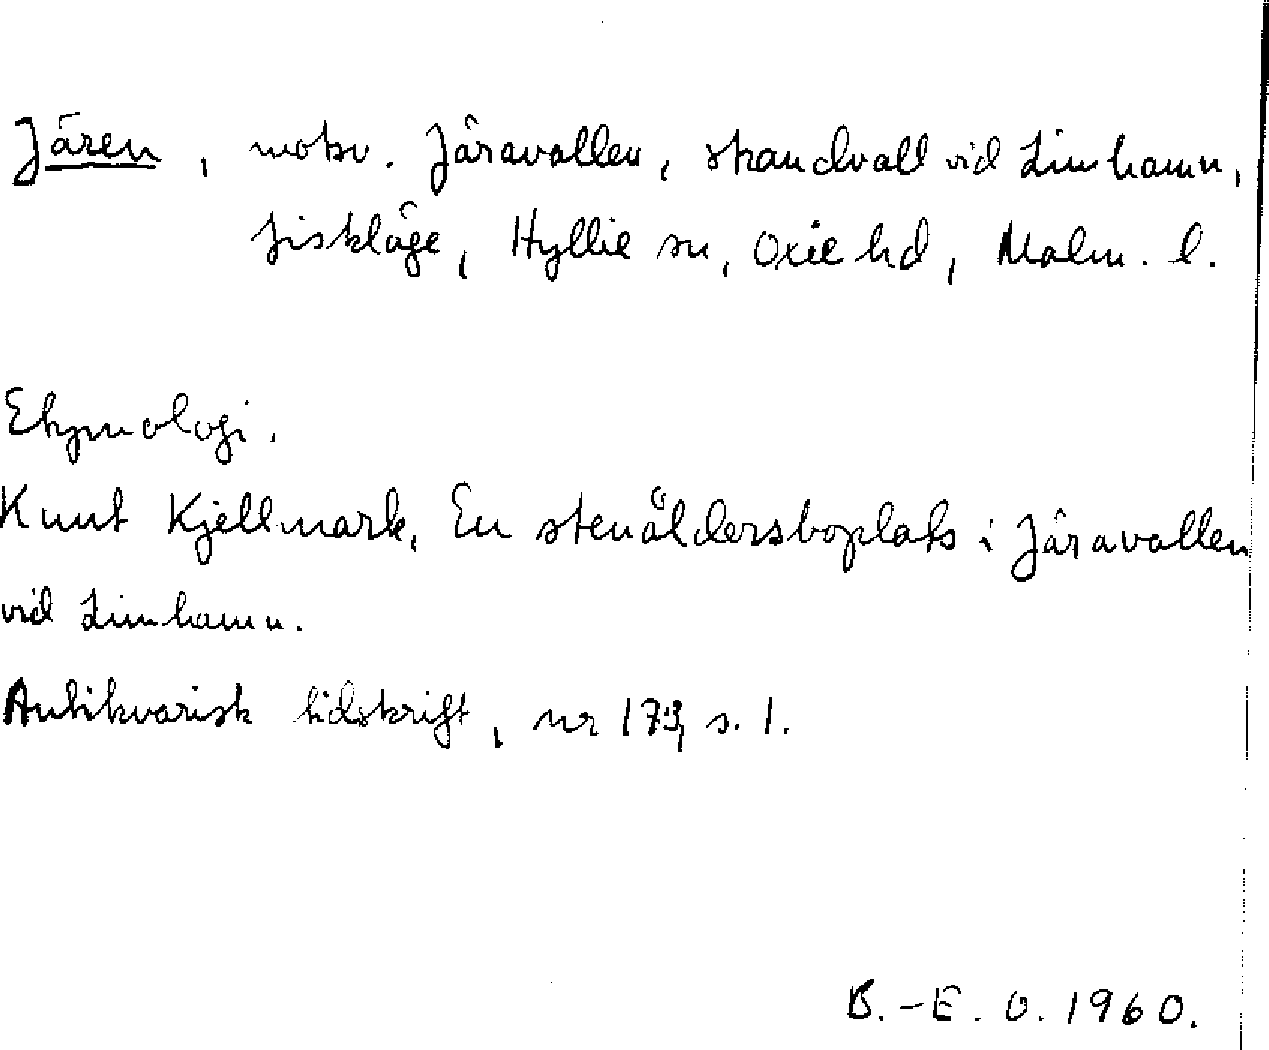 Jären, motsv. Järavallen, strandvall vid Limhamn,
fiskläge, Hyllie sn, Oxie hd, Malm. l.
Etymologi.
Knut Kjellmark, En stenåldersboplats i Järavallen
vid Limhamn.
Antikvarisk tidskrift, nr 173, s. 1.
B.-E. O. 1960.